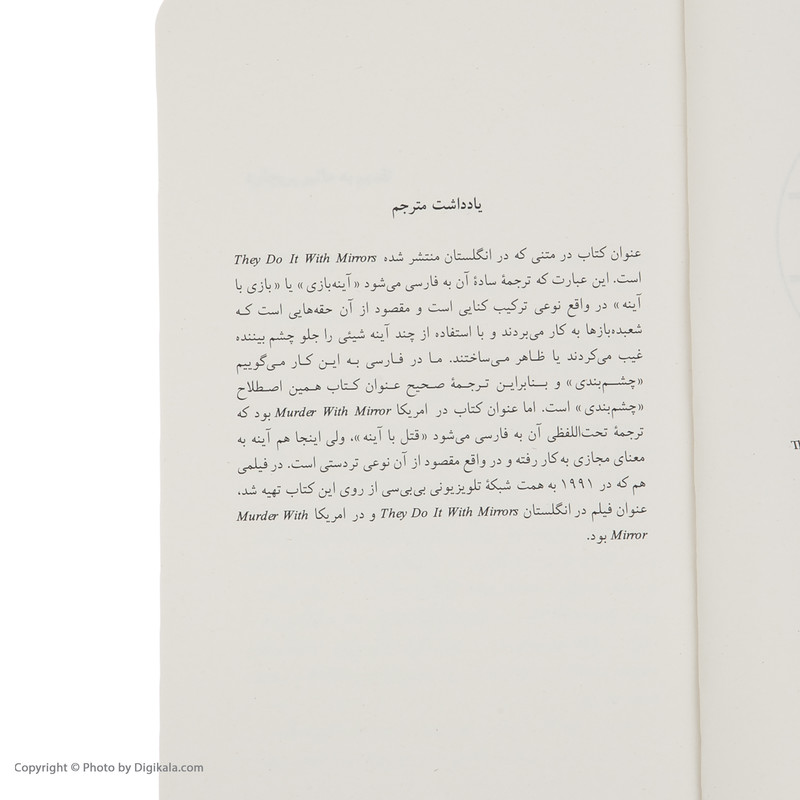 یادداشت مترجم
عنوان کتاب در متنی که در انگلستان منتشر شده They Do It With Mirrors
است. این عبارت که ترجمهٔ سادهٔ آن به فارسی می‌شود «آینه‌بازی» یا «بازی با
آینه» در واقع نوعی ترکیب کنایی است و مقصود از آن حقه‌هایی است که
شعبده‌بازها به کار می‌بردند و با استفاده از چند آینه شیئی را جلو چشم بیننده
غیب می‌کردند یا ظاهر می‌ساختند. ما در فارسی به این کار می‌گوییم
«چشم‌بندی» و بنابراین ترجمهٔ صحیح عنوان کتاب همین اصطلاح
«چشم‌بندی» است. اما عنوان کتاب در امریکا Murder With Mirror بود که
ترجمهٔ تحت‌اللفظی آن به فارسی می‌شود «قتل با آینه»، ولی اینجا هم آینه به
معنای مجازی به‌کار رفته و در واقع مقصود از آن نوعی تردستی است. در فیلمی
هم که در ۱۹۹۱ به همت شبکهٔ تلویزیونی بی‌بی‌سی از روی این کتاب تهیه شد،
عنوان فیلم در انگلستان They Do It With Mirrors و در امریکا Murder With
Mirror بود.
Copyright © Photo by Digikala.com